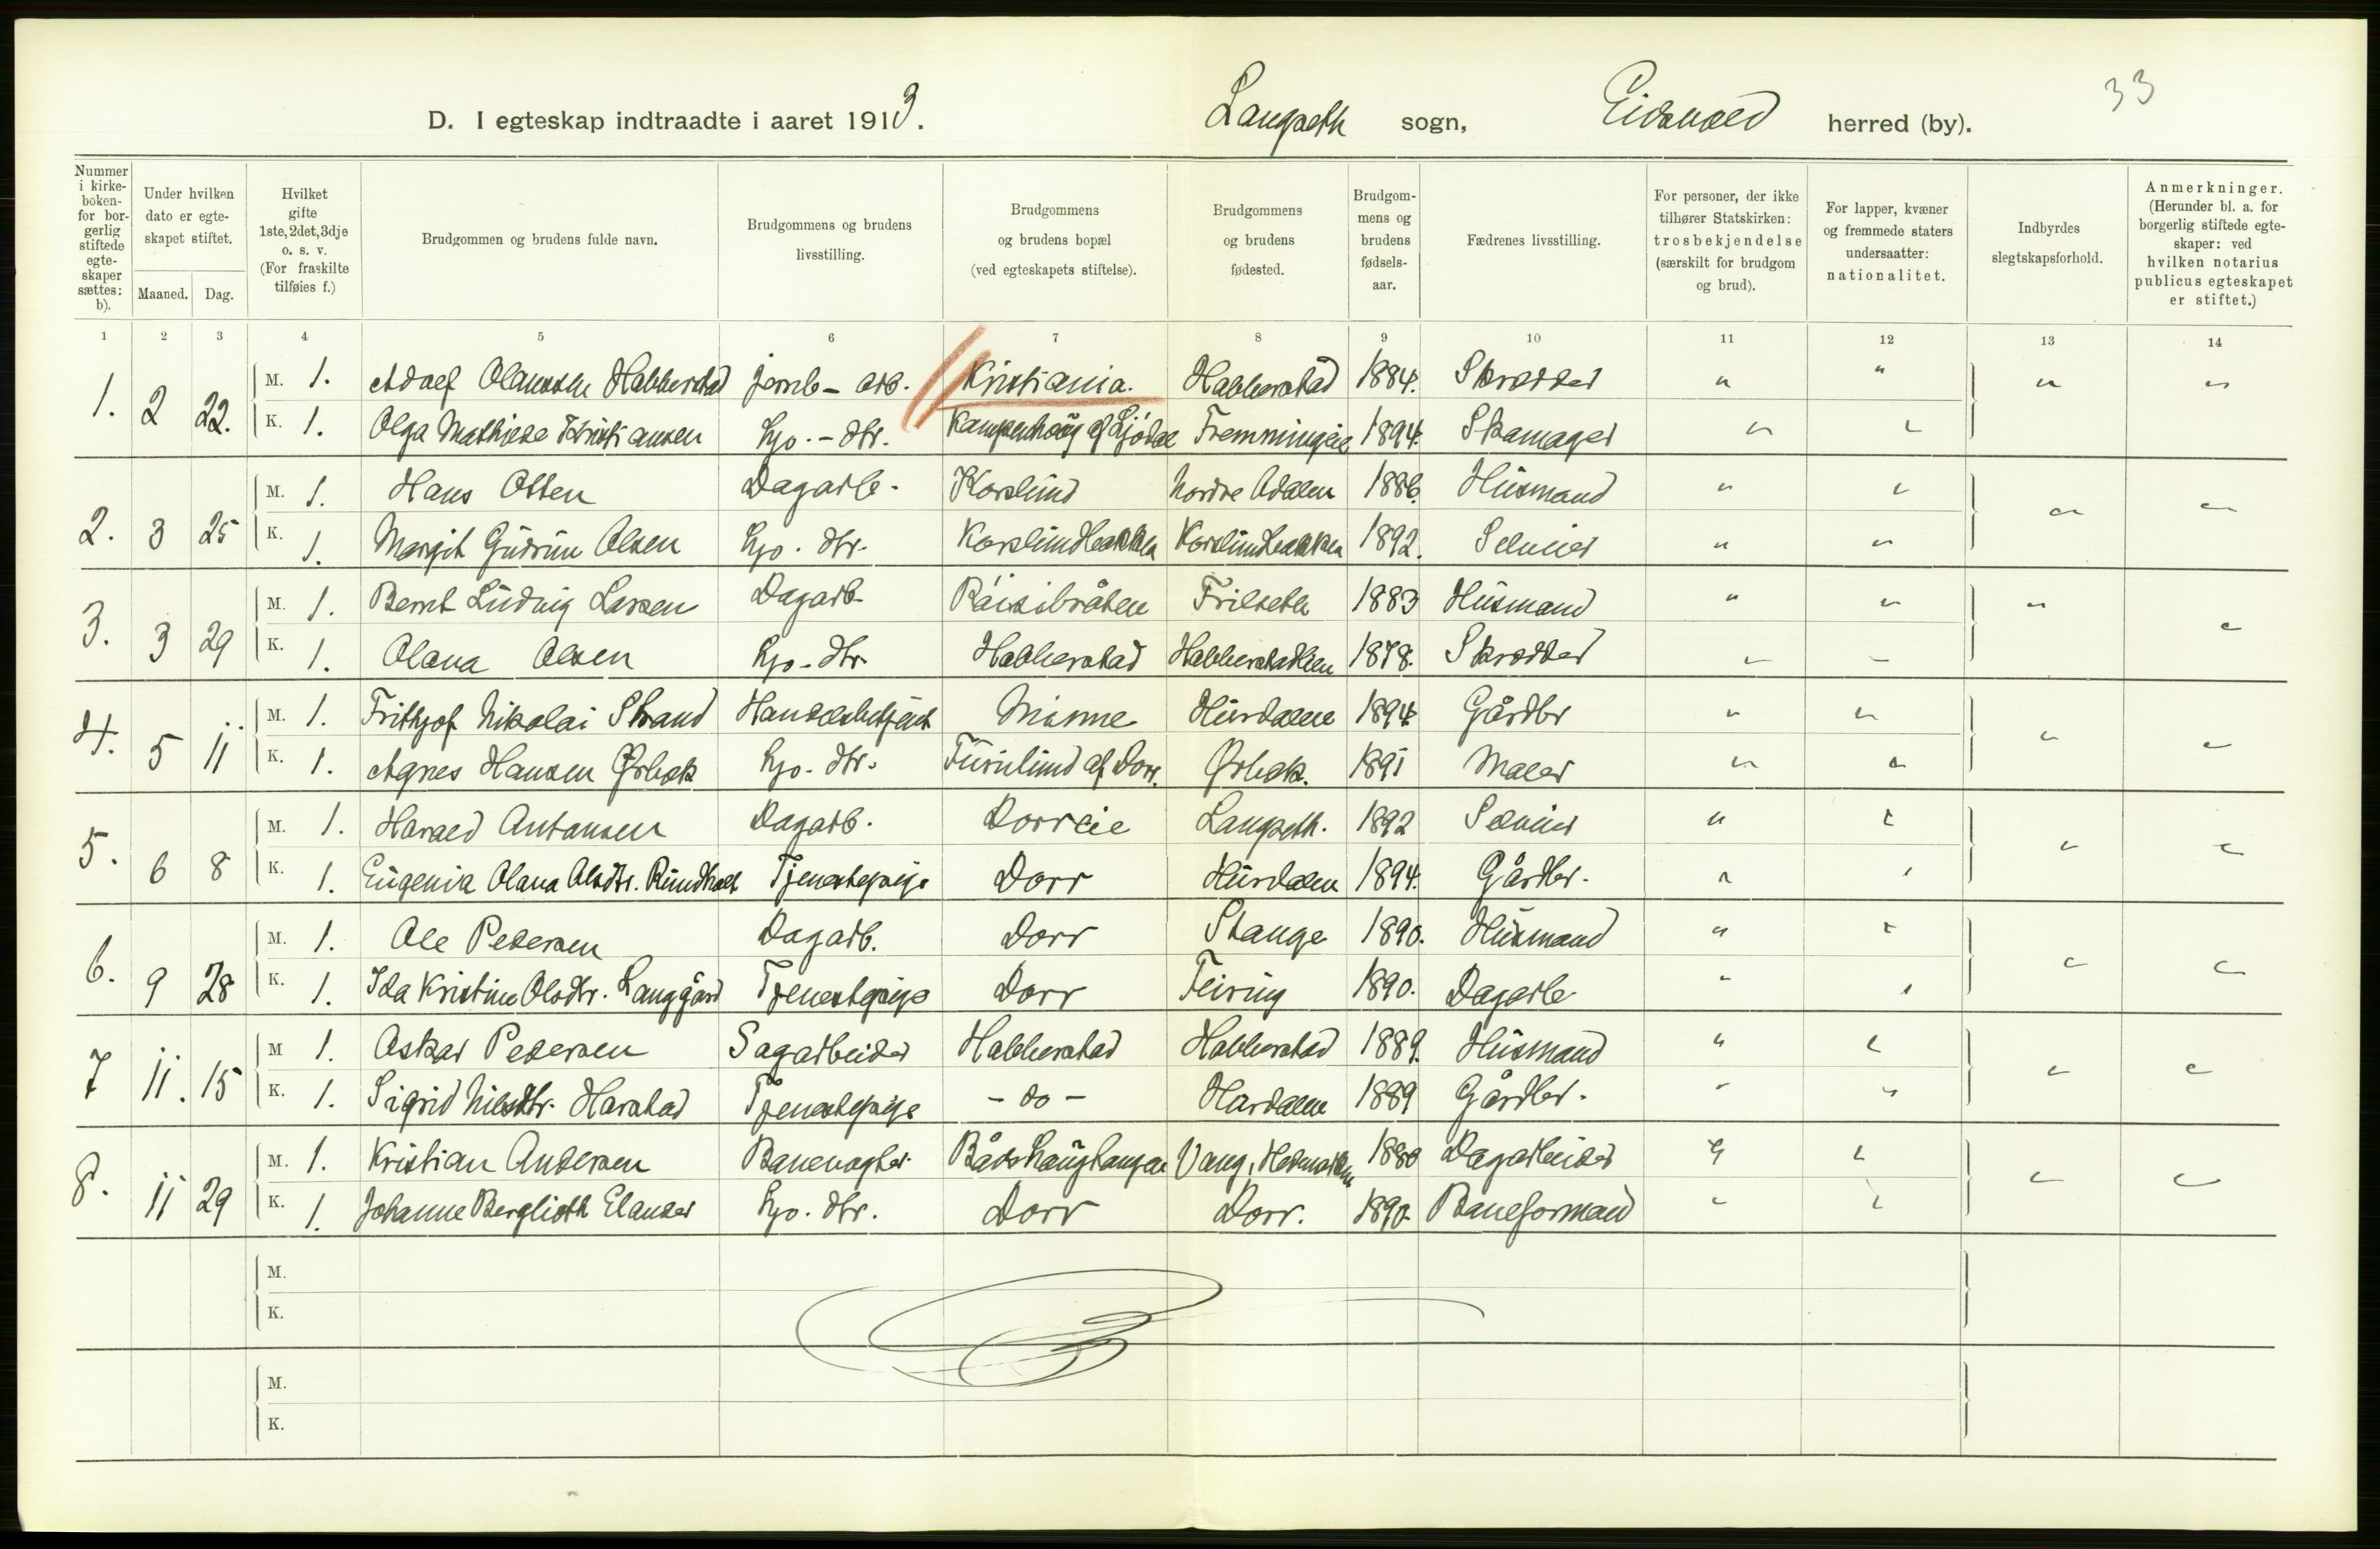 33
D. I egteskap indtraadte i aaret 1913. Langseth sogn, Eidsvold herred (by).
Nummer i kirke-boken- for bor-gerlig stiftede egte-skaper sættes: b). | Under hvilken dato er egte-skapet stiftet. Maaned. Dag. | Hvilket gifte 1ste, 2det, 3dje o. s. v. (For fraskilte tilføies f.) | Brudgommen og brudens fulde navn. | Brudgommens og brudens livsstilling. | Brudgommens og brudens bopæl (ved egteskapets stiftelse). | Brudgommens og brudens fødested. | Brudgom-mens og brudens fødsels-aar. | Fædrenes livsstilling. | For personer, der ikke tilhører Statskirken: trosbekjendelse (særskilt for brudgom og brud). | For lapper, kvæner og fremmede staters undersaatter: nationalitet. | Indbyrdes slegtskapsforhold. | Anmerkninger. (Herunder bl. a. for borgerlig stiftede egte-skaper: ved hvilken notarius publicus egteskapet er stiftet.)
1 2 3 4 5 6 7 8 9 10 11 12 13 14
1. 2 22. M. 1. Adolf Olaussen Habberstad jernb-arb. Kristiania. Habberstad 1884. Skrædder " " " "
K. 1. Olga Mathilde Kristiansen Hjo.-dtr. Fremmingeie 1894. Skomager " "
2. 3 25 M. 1. Hans Olsen Dagarb. Korslund Nordre Ødalen 1886. Husmand " " " "
K. 1. Margit Gudrun Olsen Hjo. dtr. Korslundbakken Korslundbakken 1892. Selveier " "
3. 3 29 M. 1. Bernt Ludvig Larsen Dagarb Räisibråten Trilseth 1883 Husmand " " " "
K. 1. Olava Olsen Hjo-dtr. Habberstad Habberstadeien 1878. Skrædder " "
4. 5 11 M. 1. Frithjof Nikolai Strand Handelsbetjent Minne Hurdalen 1894 Gårdbr " " " "
K. 1. Agnes Hansen Ørbæk Hjo. dtr. Furulund af Dorr. Ørbæk. 1891 Maler " "
5. 6 8 M. 1. Harald Antonsen Dagarb. Dorreie Langseth. 1892 Selveier " " " "
K. 1. Eugenia Olava Olsdtr. Rundhaet Tjenestepige Dorr Hurdalen 1894. Gårdbr. " "
6. 9 28 M. 1. Ole Pedersen Dagarb. Dorr Stange 1890. Husmand " " " "
K. 1. Ida Kristine Olsdtr. Langgård Tjenestepige Dorr Feiring 1890. Dagarb " "
7 11. 15 M 1. Oskar Pedersen Sagarbeider Habberstad Habberstad 1889. Husmand " " " "
K. 1. Sigrid Nilsdtr. Harstad Tjenestepige - do - Hurdalen 1889 Gårdbr. " "
8. 11 29 M. 1. Kristian Andersen Banevogter Vang, Hedemarken 1880 Dagarbeider " " " "
K. 1. Johanne Berglioth Elander Hjo. dtr. Dorr Dorr. 1890. Baneformand " "
M.
K.
M.
K.